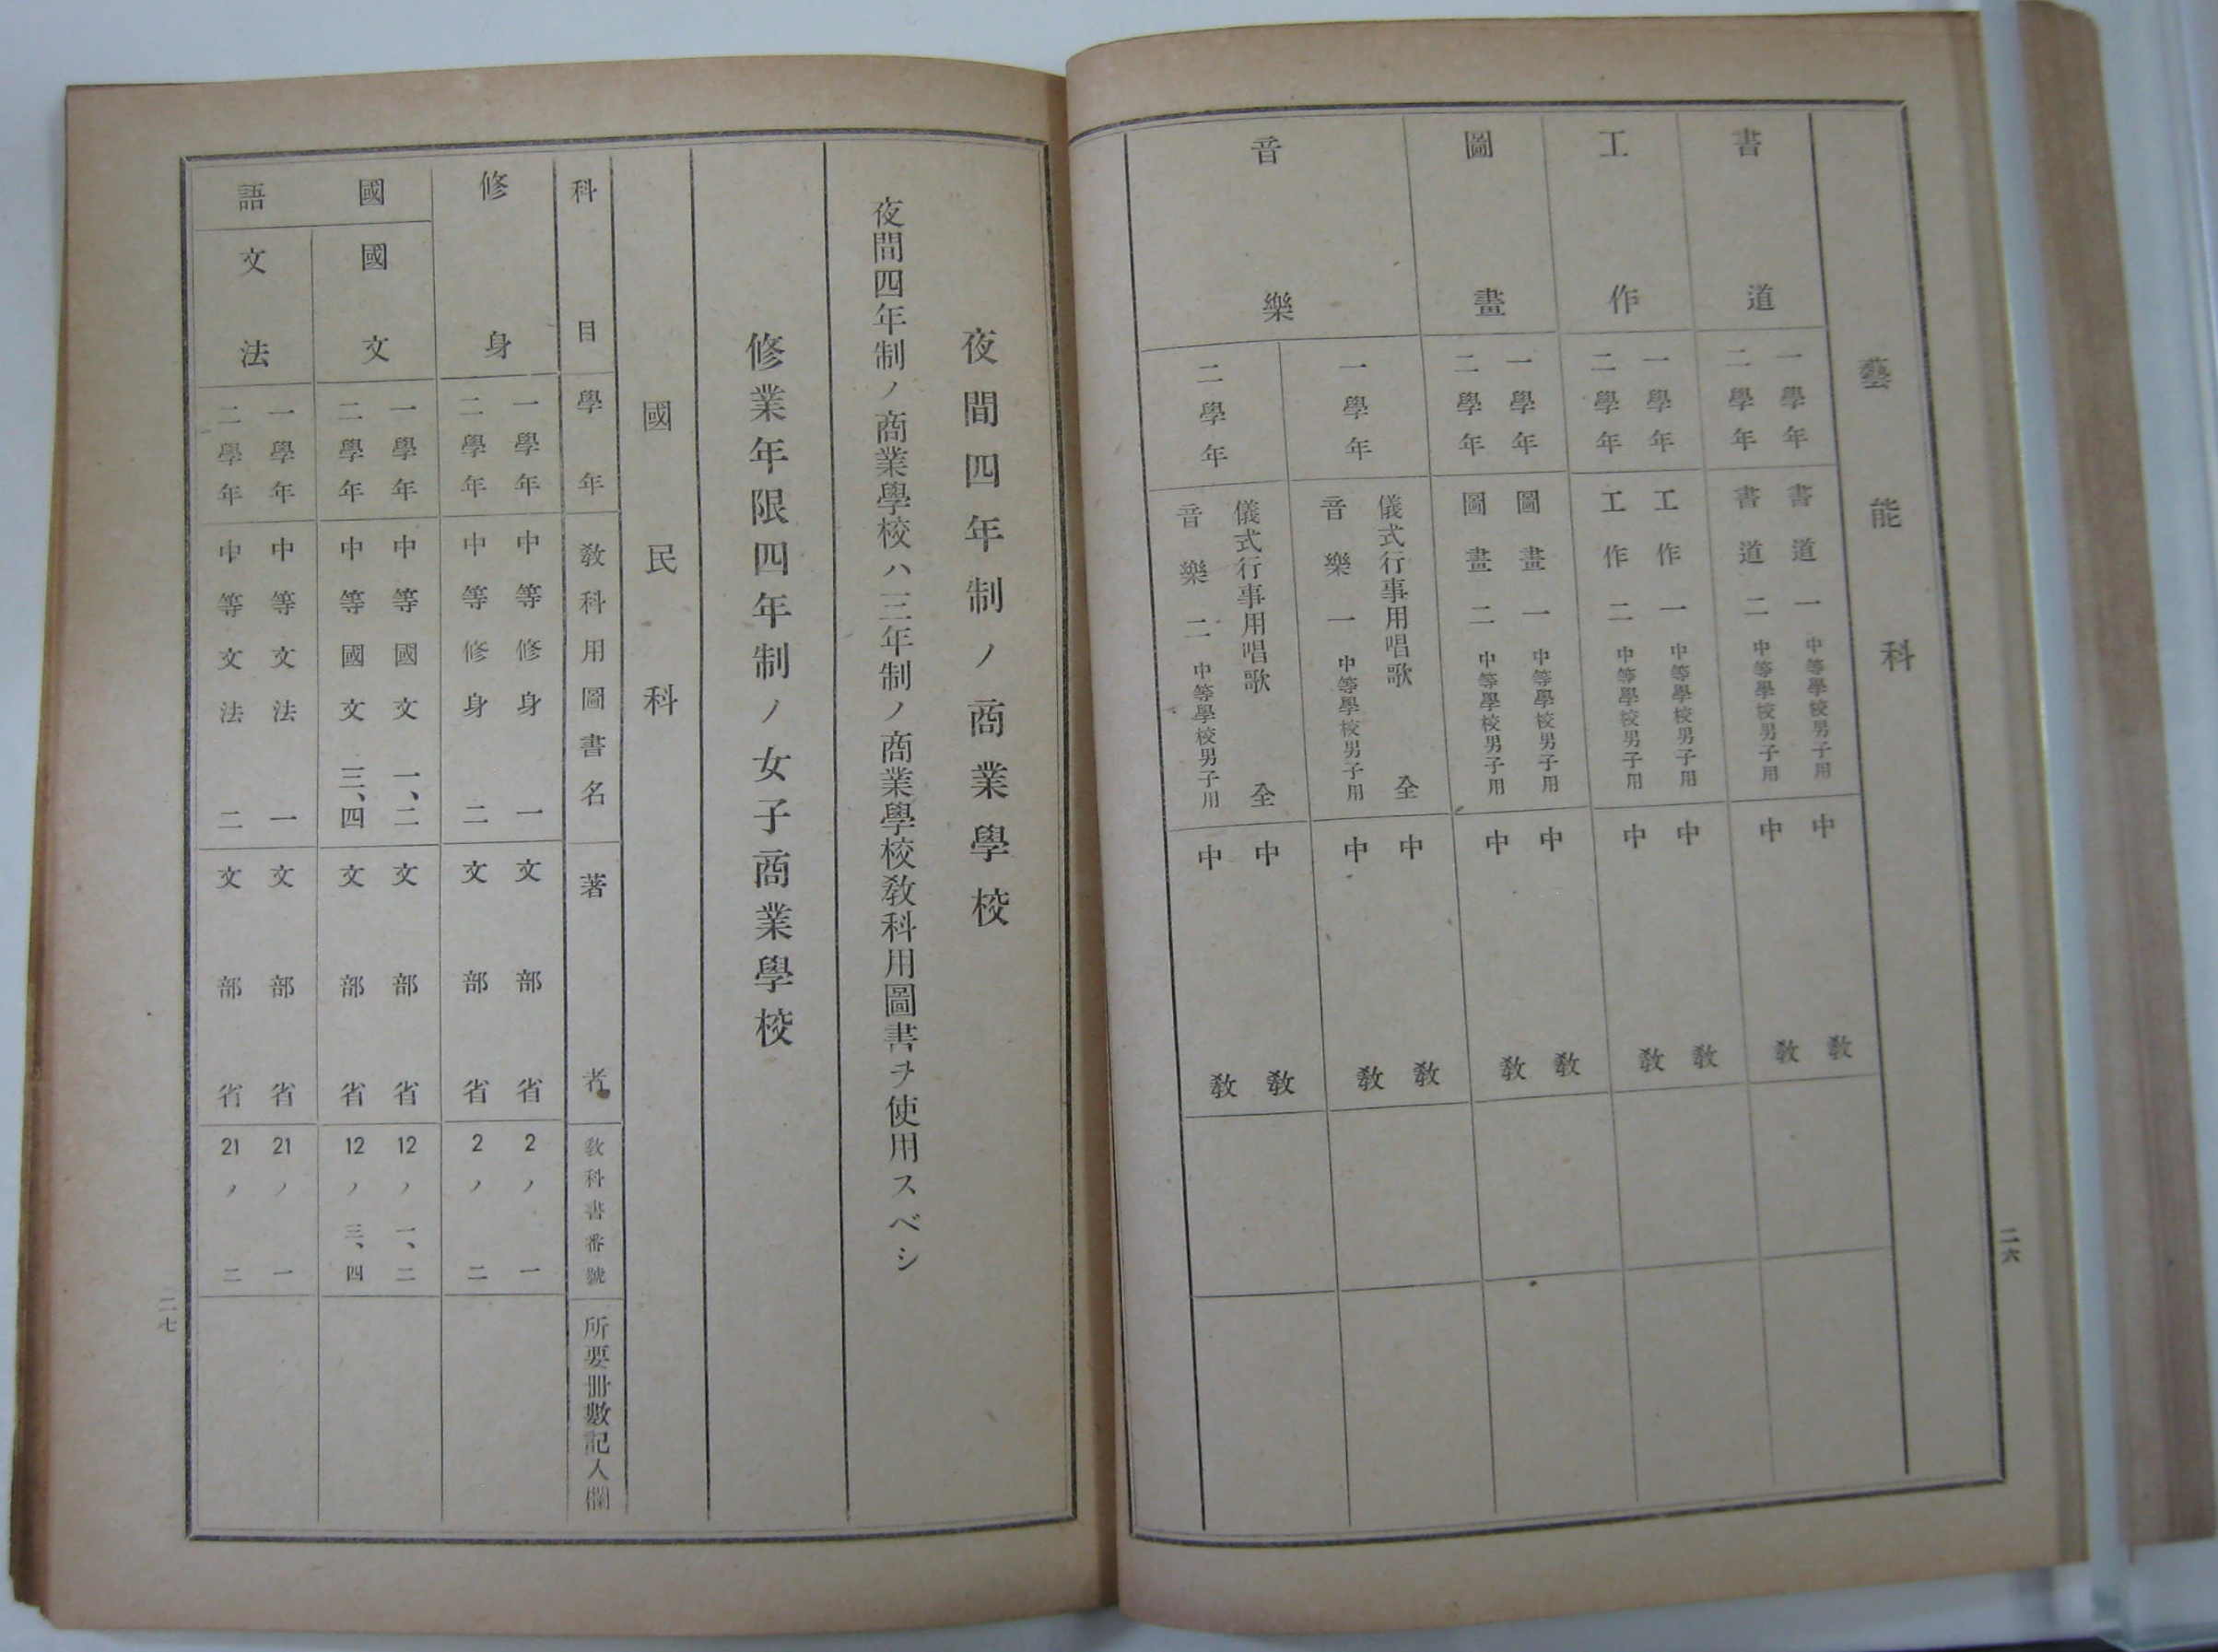 二六
藝能科
書道
一學年
書道一 中等學校男子用
中教
二學年
書道二 中等學校男子用
中教
工作
一學年
工作一 中等學校男子用
中教
二學年
工作二 中等學校男子用
中教
圖畫
一學年
圖畫一 中等學校男子用
中教
二學年
圖畫二 中等學校男子用
中教
音樂
一學年
儀式行事用唱歌 全
中教
音樂一 中等學校男子用
中教
二學年
儀式行事用唱歌 全
中教
音樂二 中等學校男子用
中教
夜間四年制ノ商業學校
夜間四年制ノ商業學校ハ三年制ノ商業學校教科用圖書ヲ使用スベシ
修業年限四年制ノ女子商業學校
國民科
科目
學年
教科用圖書名
著者
教科書番號
所要冊數記入欄
修身
一學年
中等修身 一
文部省
2ノ一
二學年
中等修身 二
文部省
2ノ二
國語
國文
一學年
中等國文 一、二
文部省
12ノ一、二
二學年
中等國文 三、四
文部省
12ノ三、四
文法
一學年
中等文法 一
文部省
21ノ一
二學年
中等文法 二
文部省
21ノ二
二七